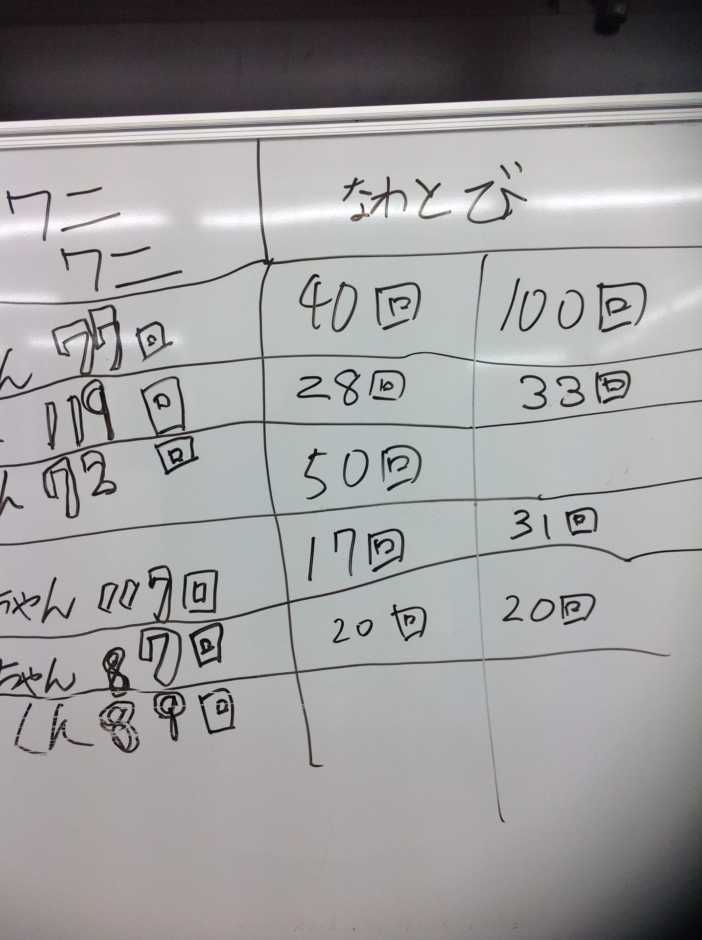 ワニ
ワニ
なわとび
40回 100回
ん 77回
28回 33回
119回
50回
ん 73回
17回 31回
ちゃん 117回
20回 20回
ちゃん 87回
くん 89回